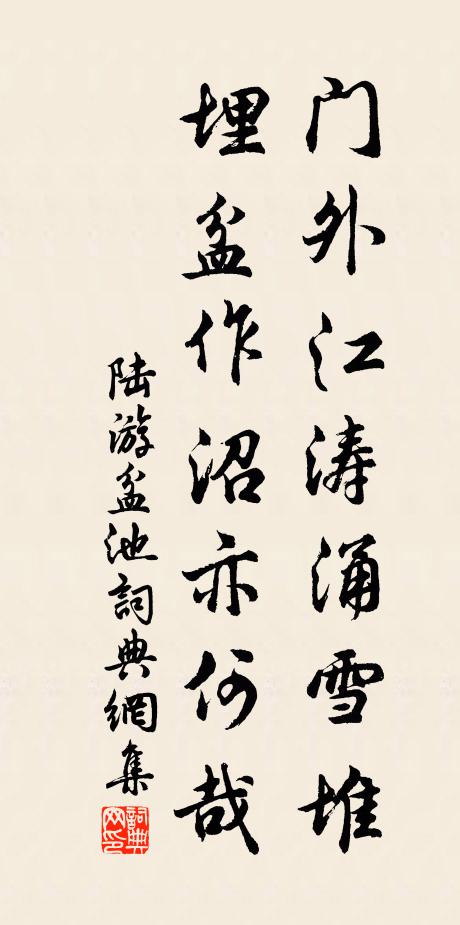 门外江涛涌雪堆
埋盆作沼亦何哉
陆游盆池詞典網集
詞典网印